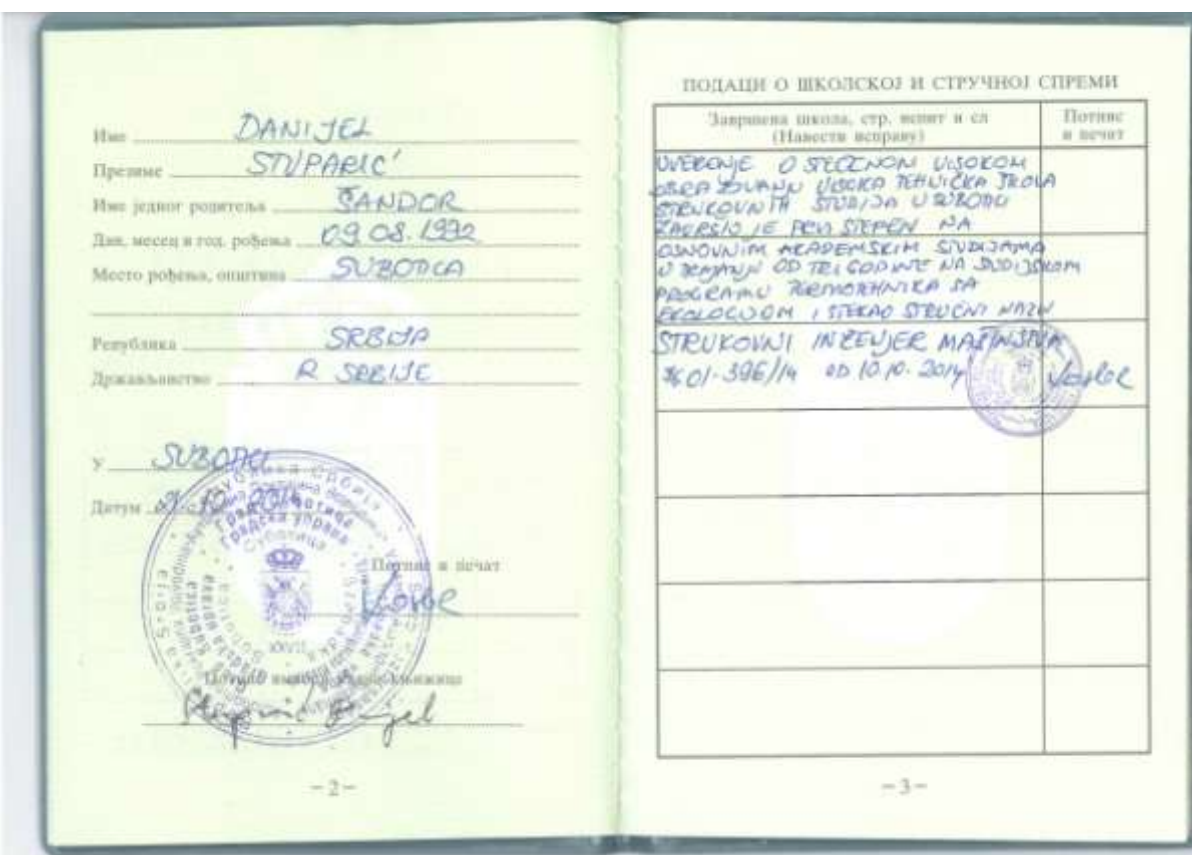 Име DANIJEL
Презиме STIPARIĆ
Име једног родитеља ŠANDOR
Дан, месец и год. рођења 09.08.1992
Место рођења, општина SUBOTICA
Република SRBIJA
Држављанство R SRBIJE
У SUBOTICI
Датум
Потпис и печат
Република Србија
Градска управа
Суботица
Subotica
Gradska uprava
XXVII
Потпис књижица
-2-
ПОДАЦИ О ШКОЛСКОЈ И СТРУЧНОЈ СПРЕМИ
Завршена школа, стр. испит и сл
(Навести исправу)
Потпис
и печат
UVERENJE O STEČENOM VISOKOM
OBRAZOVANJU VISOKA TEHNIČKA ŠKOLA
STRUKOVNIH STUDIJA U SUBOTICI
ZAVRŠIO JE PRVI STEPEN NA
OSNOVNIM AKADEMSKIM STUDIJAMA
U TRAJANJU OD TRI GODINE NA STUDIJSKOM
PROGRAMU TERMOTEHNIKA SA
EKOLOGIJOM I STEKAO STRUČNI NAZIV
STRUKOVNI INŽENJER MAŠINSTVA
01-396/14 OD 10.10.2014
-3-